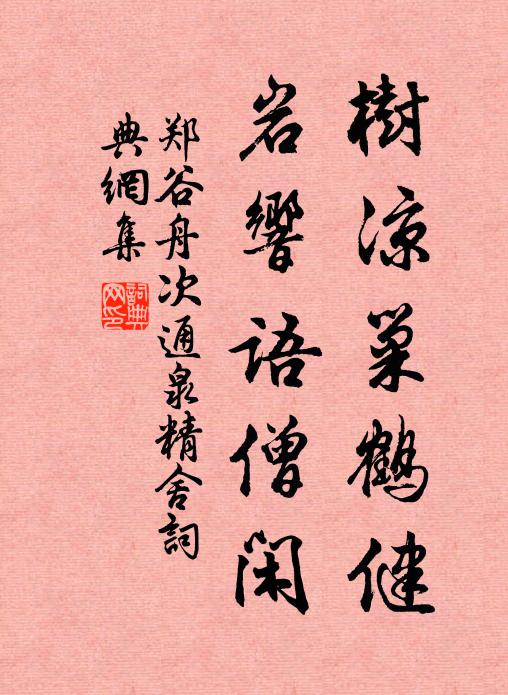 樹涼巢鶴健
岩響語僧閑
郑谷舟次通泉精舍詞
典網集
詞典网印